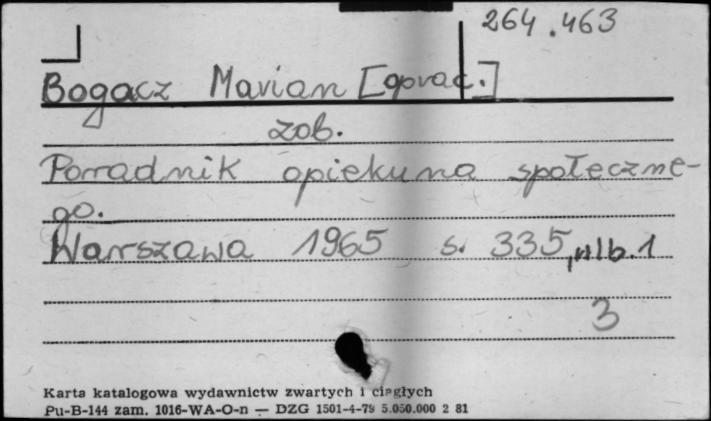 264.463
Bogacz Marian [oprac.]
zob.
Poradnik opiekuna społeczne-
go.
Warszawa 1965 s. 335, nlb. 1
3
Karta katalogowa wydawnictw zwartych i ciągłych
Pu-B-144 zam. 1016-WA-O-n — DZG 1501-4-79 5.050.000 2 81